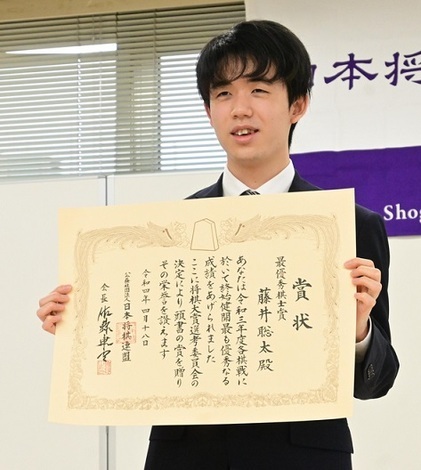 本将
Shog
賞状
最優秀棋士賞
藤井聡太殿
あなたは令和三年度各棋戦に
於いて終始健闘最も優秀なる
成績をあげられました
ここに将棋大賞選考委員会の
決定により頭書の賞を贈り
その栄誉を讃えます
令和四年四月十八日
公益社団法人日本将棋連盟
会長 佐藤康光